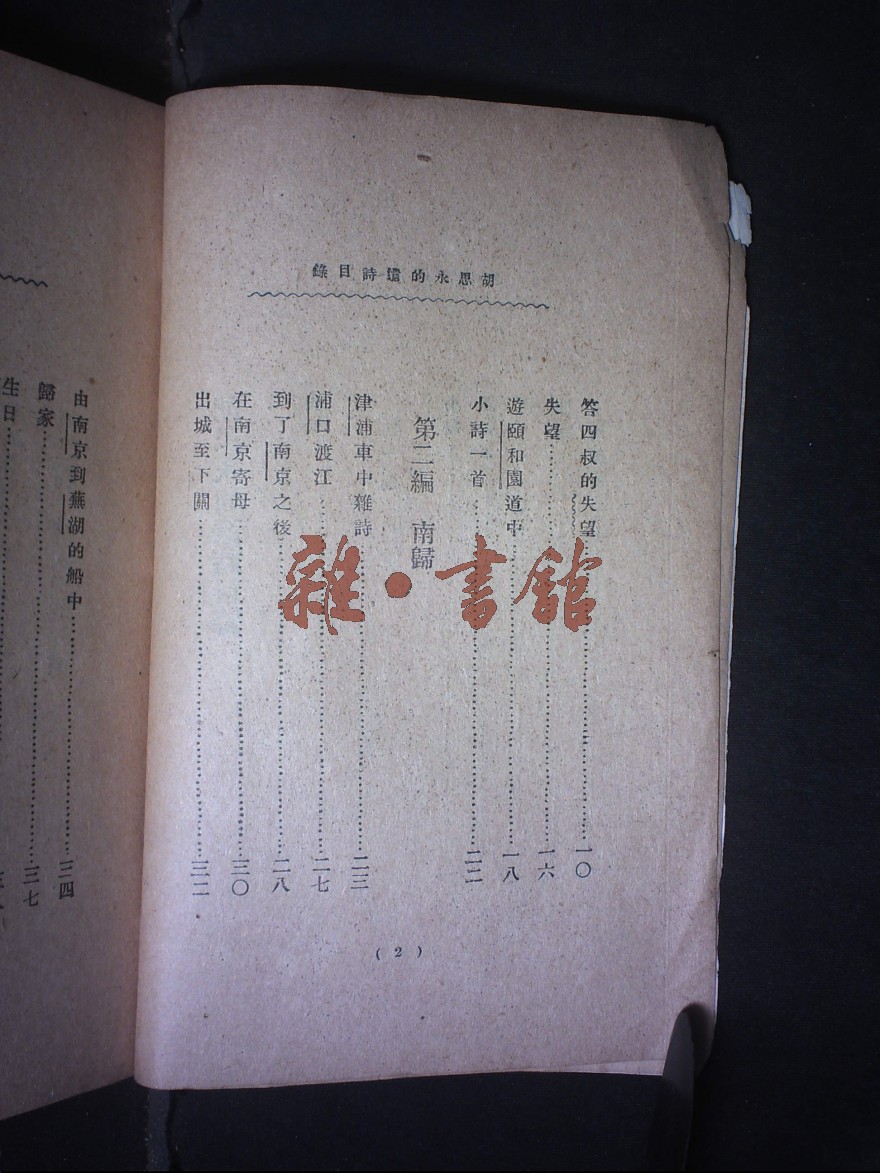 胡思永的遺詩目錄
答四叔的失望……一〇
失望……一六
遊頤和園道中……一八
小詩一首……二二
第二編 南歸
津浦車中雜詩……二三
浦口渡江……二七
到了南京之後……二八
在南京寄母……三〇
出城至下關……三二
(2)
由南京到蕪湖的船中……三四
歸家……三七
生日……
雜·書館